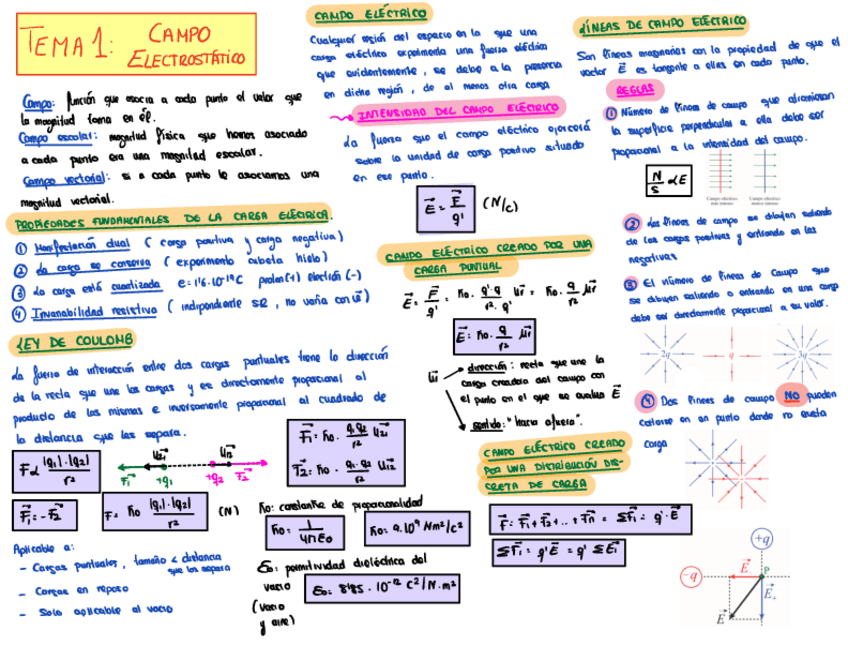 TEMA 1: CAMPO
ELECTROSTÁTICO
Campo: función que asocia a cada punto el valor que
la magnitud toma en él.
Campo escalar: magnitud física que hemos asociado
a cada punto era una magnitud escalar.
Campo vectorial: si a cada punto le asociamos una
magnitud vectorial.
PROPIEDADES FUNDAMENTALES DE LA CARGA ELÉCTRICA.
① Manifestación dual (carga positiva y carga negativa)
② La carga se conserva (experimento cubeta hielo)
③ La carga está cuantizada e = 1'6·10⁻¹⁹C protón (+) electrón (-)
④ Invariabilidad relativista (independiente SR, no varía con v⃗)
LEY DE COULOMB
La fuerza de interacción entre dos cargas puntuales tiene la dirección
de la recta que une las cargas y es directamente proporcional al
producto de las mismas e inversamente proporcional al cuadrado de
la distancia que las separa.
F α |q₁|·|q₂| / r²
F⃗₁ u⃗₂₁ +q₁ u⃗₁₂ +q₂ F⃗₂
F⃗₁ = k₀ · q₁·q₂ / r² u⃗₂₁
F⃗₂ = k₀ · q₁·q₂ / r² u⃗₁₂
F⃗₁ = -F⃗₂
F = k₀ |q₁|·|q₂| / r² (N)
k₀: constante de proporcionalidad
k₀ = 1 / 4πε₀
k₀ = 9·10⁹ Nm²/C²
ε₀: permitividad dieléctrica del
vacío
(vacío
y aire)
ε₀ = 8'85 · 10⁻¹² C²/N·m²
Aplicable a:
- Cargas puntuales, tamaño < distancia
que las separa
- Cargas en reposo
- Solo aplicable al vacío
CAMPO ELÉCTRICO
Cualquier región del espacio en la que una
carga eléctrica experimenta una fuerza eléctrica
que evidentemente, se debe a la presencia
en dicha región, de al menos otra carga
INTENSIDAD DEL CAMPO ELÉCTRICO
La fuerza que el campo eléctrico ejercerá
sobre la unidad de carga positiva situado
en ese punto.
E⃗ = F⃗ / q' (N/C)
CAMPO ELÉCTRICO CREADO POR UNA
CARGA PUNTUAL
E⃗ = F⃗ / q' = k₀ · q'·q / r²·q' u⃗r = k₀ · q / r² u⃗r
E⃗ = k₀ · q / r² u⃗r
u⃗r
dirección: recta que une la
carga creadora del campo con
el punto en el que se evalúa E⃗
sentido: "Hacia afuera".
CAMPO ELÉCTRICO CREADO
POR UNA DISTRIBUCIÓN DIS-
CRETA DE CARGA
F⃗ = F⃗₁ + F⃗₂ + ... + F⃗n = ΣF⃗i = q'·E⃗
ΣF⃗i = q'E⃗ = q' ΣE⃗i
LÍNEAS DE CAMPO ELÉCTRICO
Son líneas imaginarias con la propiedad de que el
vector E⃗ es tangente a ellas en cada punto.
REGLAS
① Número de líneas de campo que atraviesan
la superficie perpendicular a ella debe ser
proporcional a la intensidad del campo.
N/S α E
Campo eléctrico
más intenso
Campo eléctrico
menos intenso
② Las líneas de campo se dibujan saliendo
de las cargas positivas y entrando en las
negativas
③ El número de líneas de Campo que
se dibujan saliendo o entrando en una carga
debe ser directamente proporcional a su valor.
2q
q
3q
④ Dos líneas de campo NO pueden
cortarse en un punto donde no exista
carga
+q
-q
E⃗₋ P
E⃗₊
E⃗